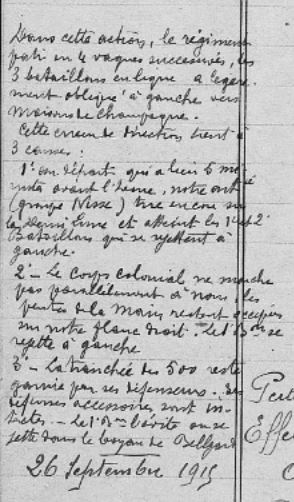 Dans cette action, le régiment
parti en 4 vagues successives, les
3 bataillons en ligne a légère-
ment obliqué à gauche vers
Maisons de Champagne.
Cette erreur de direction tient à
3 causes :
1° au départ qui a lieu 5 mi
nutes avant l'heure, notre artie
(groupe Nisse) tire encore sur
la Demi Lune et atteint les 1er et 2e
Bataillons qui se rejettent à
gauche.
2 - Le corps colonial ne marche
pas parallèlement à nous, les
pentes de la Main restent occupées
sur notre flanc droit. Le 1er Bon se
rejette à gauche
3 - La tranchée des 500 reste
garnie par ses défenseurs. Les
défenses accessoires sont in-
tactes. - Le 1er Bon l'évite ou se
jette dans le boyau de
26 Septembre 1915
Pert
Effe